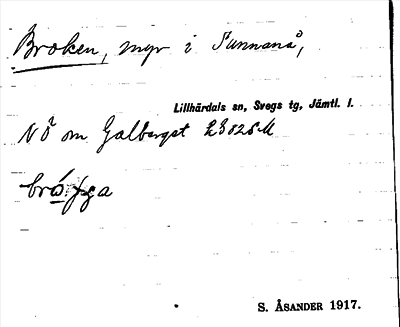 Broken, myr i Sunnanå,
Lillhärdals sn, Svegs tg, Jämtl. l.
NÖ om Galberget
S. ÅSANDER 1917.